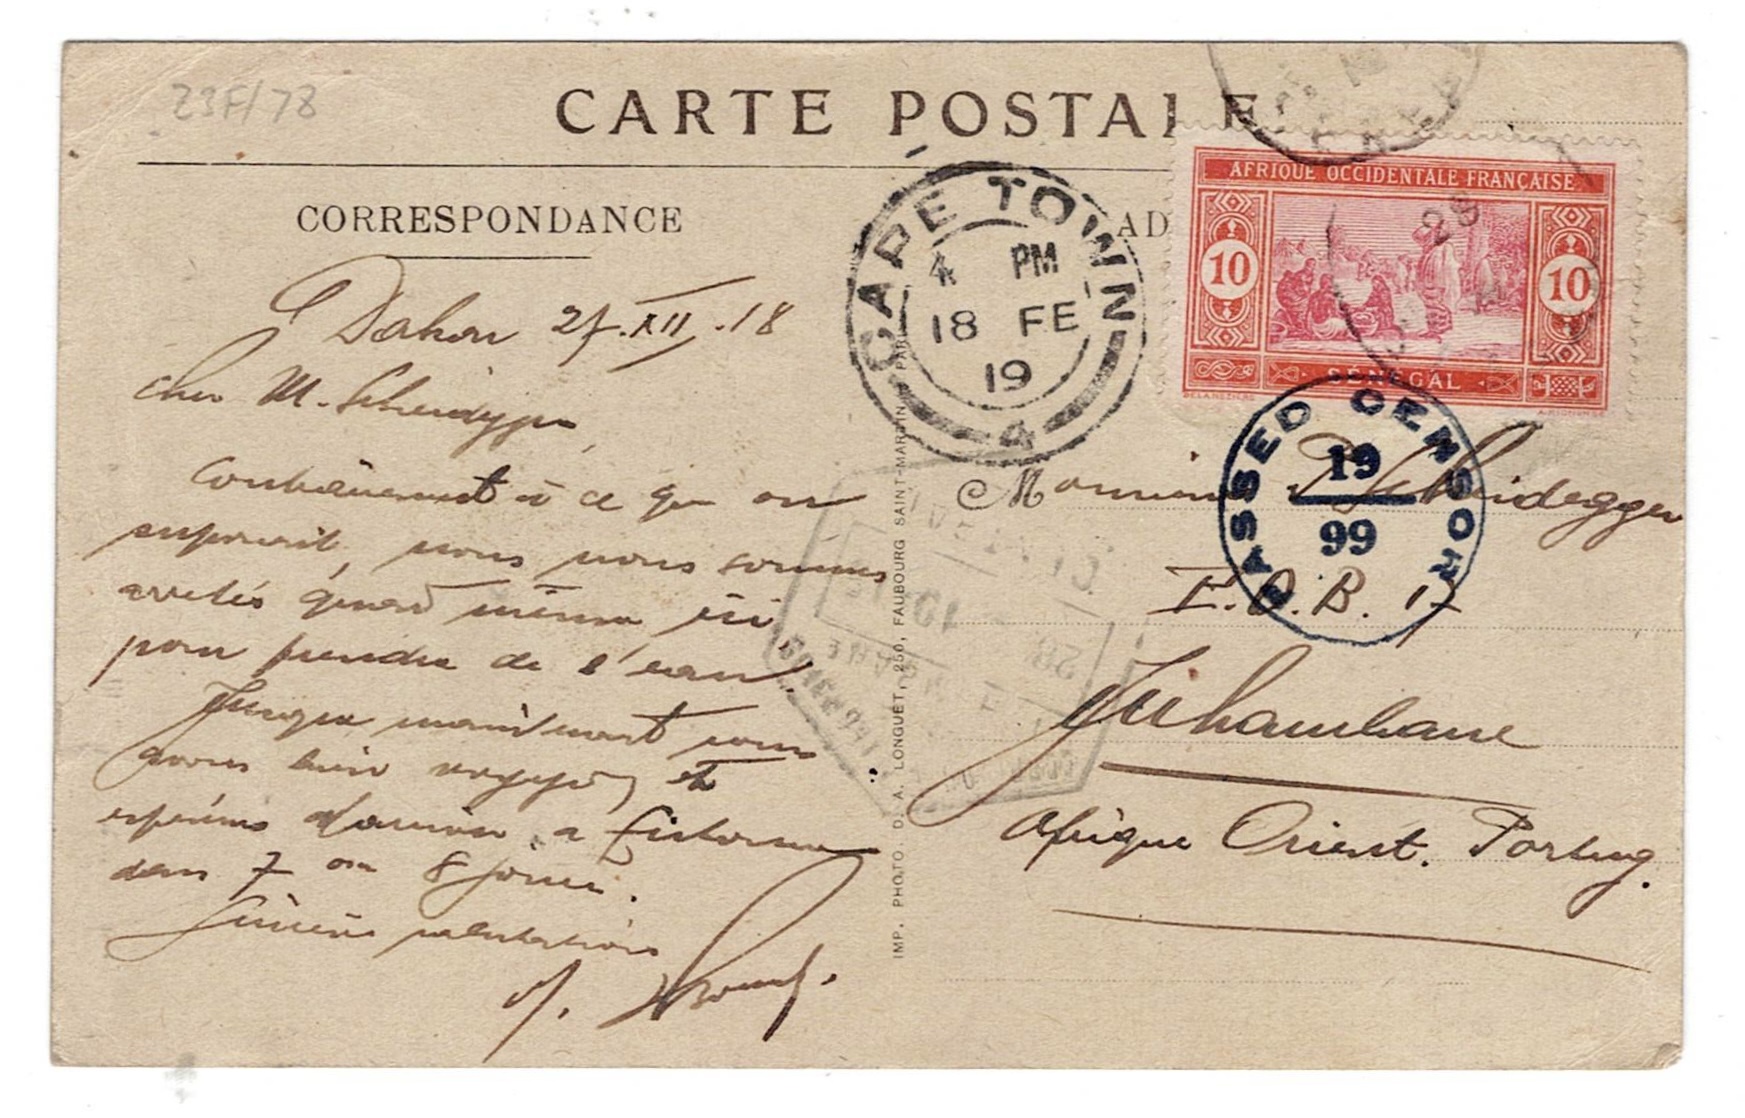 23F/78
CARTE POSTALE
CORRESPONDANCE
AD
AFRIQUE OCCIDENTALE FRANÇAISE
10
10
SÉNÉGAL
CAPE TOWN
PM
18 FE
19
4
28
PASSED CENSOR
19
99
Dakar 27.XII.18
cher M. Scheidegger,
Contrairement à ce que on
suposait, nous nous sommes
arretés quand même ici
pour prendre de l'eau.
Jusque maintenant nous
avons bien voyagé, et
espérons d'arriver a
dans 7 ou 8 jours.
salutations
Monsieur Scheidegger
B. 17
Inhambane
Afrique Orient. Portug.
IMP. PHOTO. D. A. LONGUET, 250, FAUBOURG SAINT-MARTIN